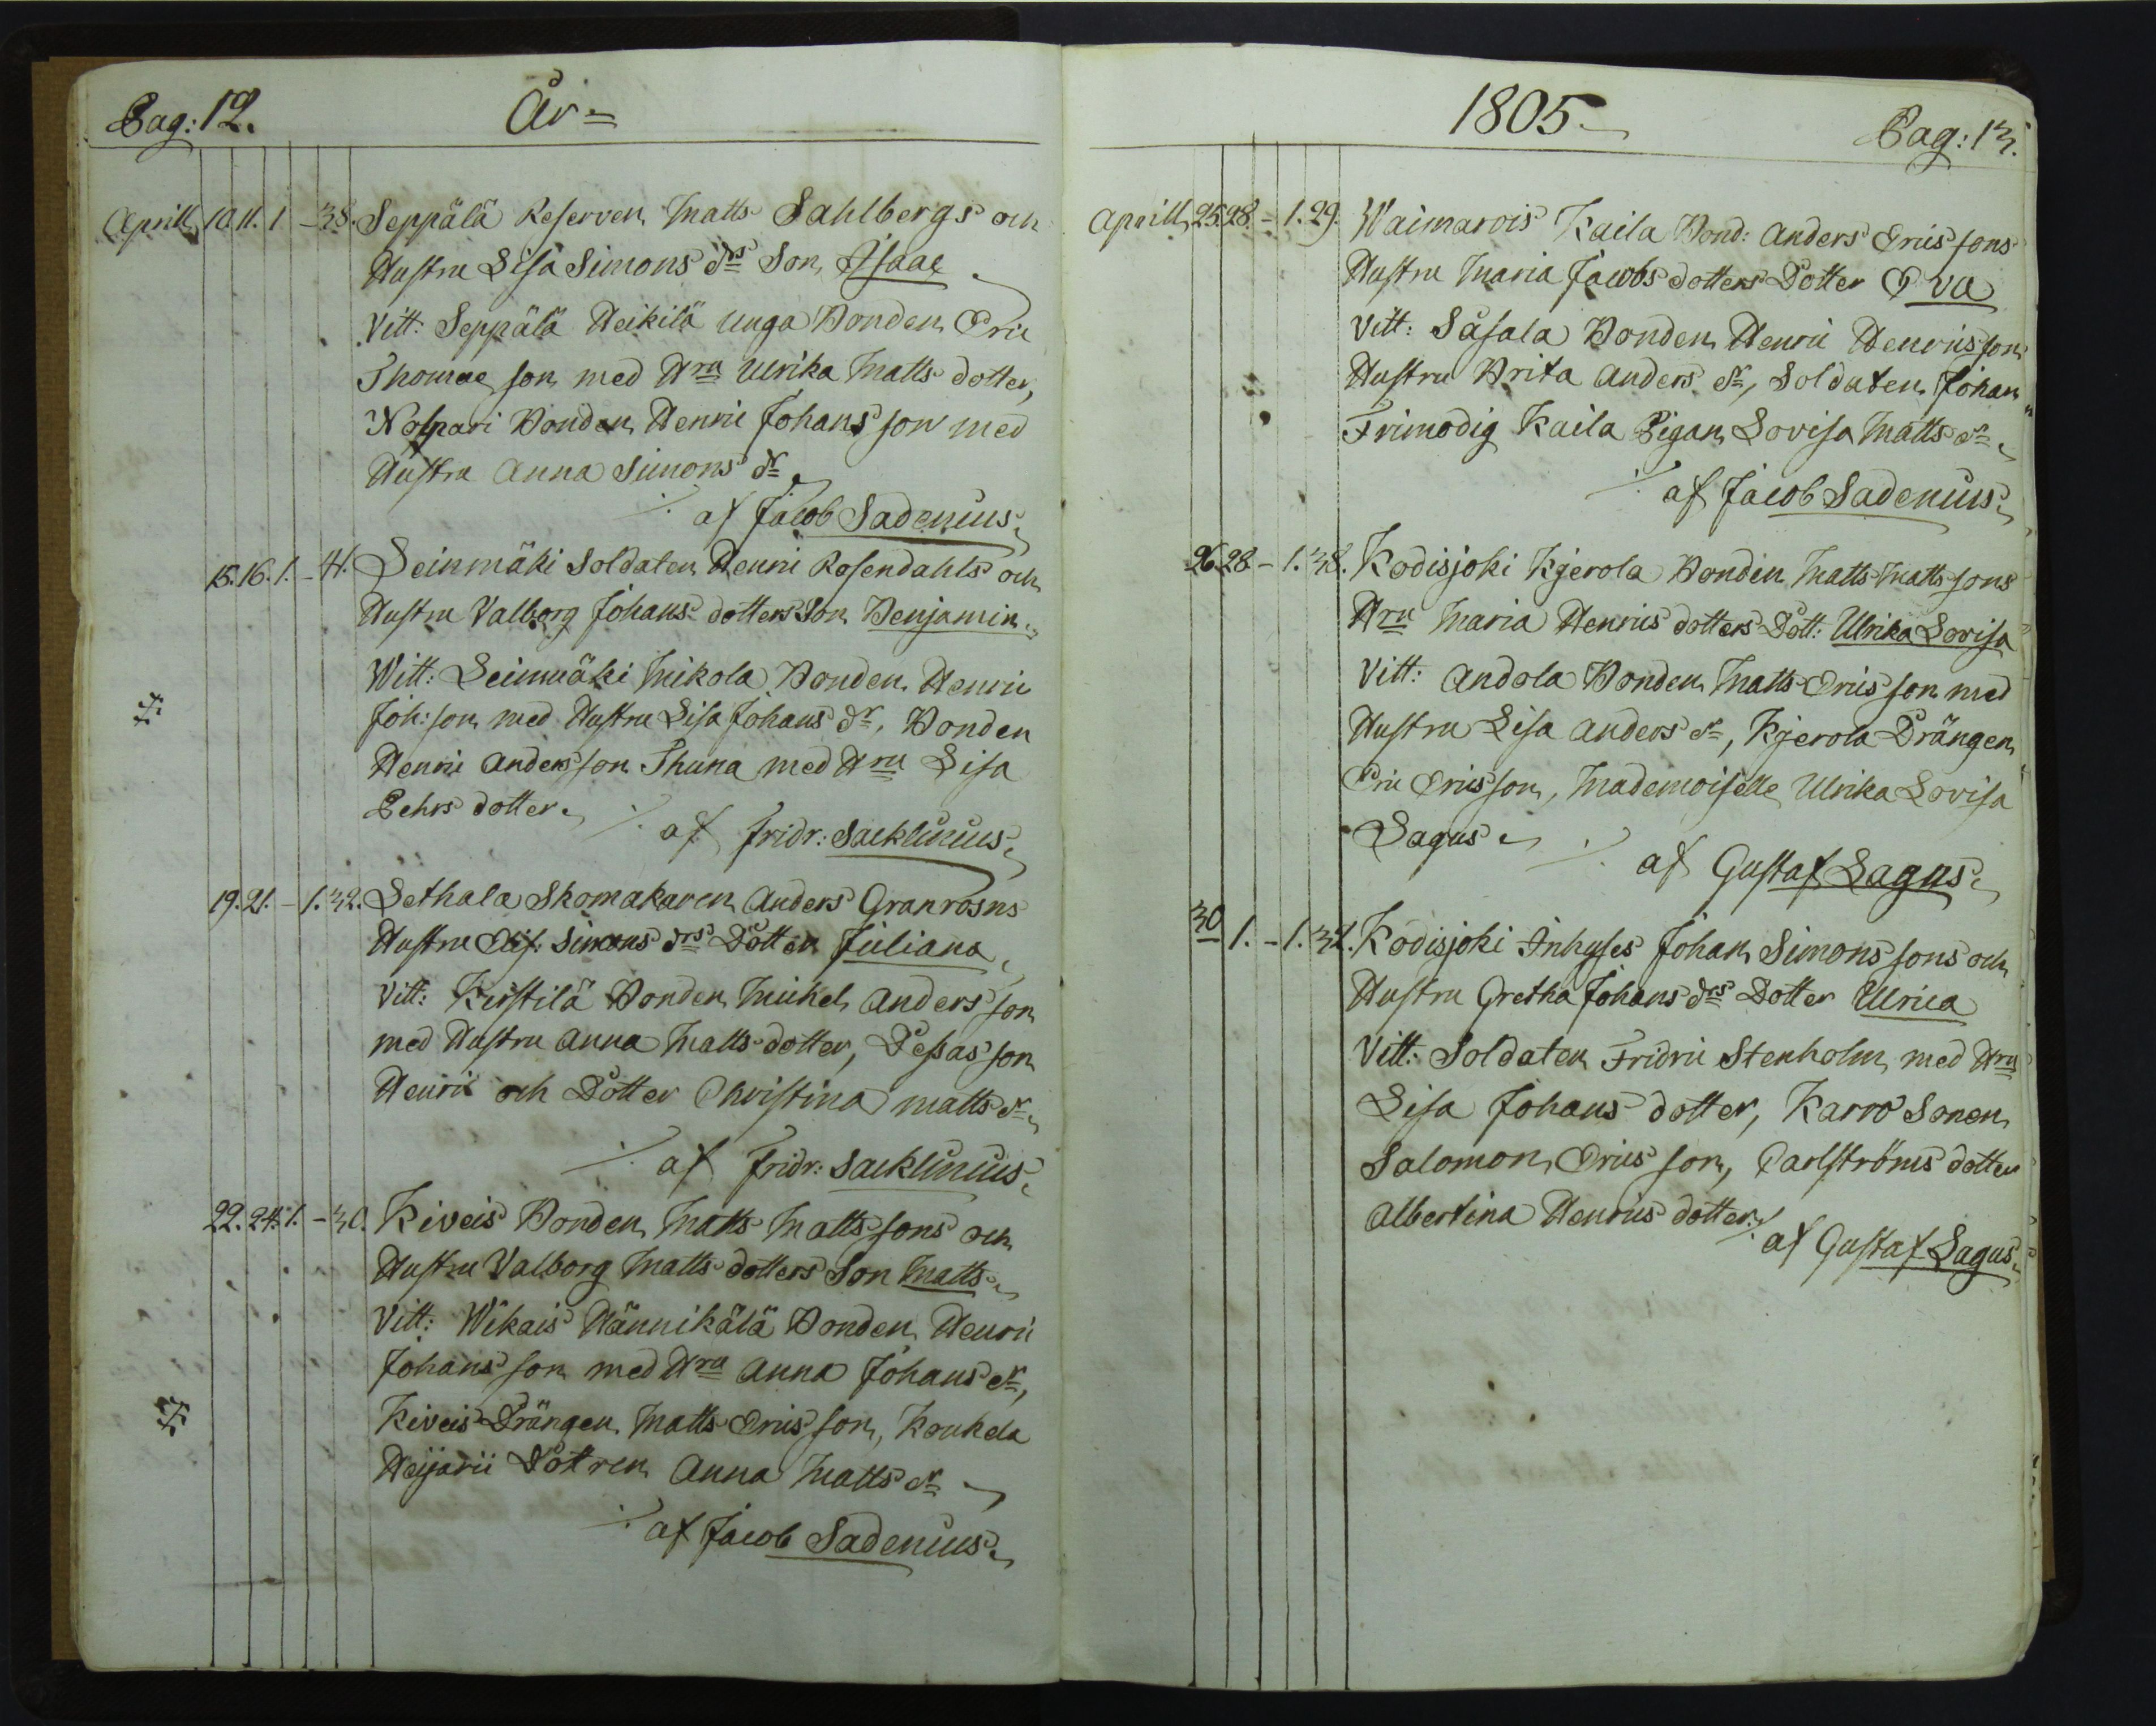 Pag: 12. År =
Aprill 10. 11. 1 - 38. Seppälä Reserven Matts Sahlbergs och
Hustru Lisa Simons drs Son, Isaac
Vitt: Seppälä Heikilä unga Bonden Eric
Thomae son med Hru Ulrika Matts dotter,
Nolpari Bonden Henric Johans son med
Hustru Anna Simons dr
/. af Jacob Sadenius.
15. 16. 1. - 41. Leinmäki Soldaten Henric Rosendahls och
Hustru Valborg Johans dotters Son Benjamin.
Witt: Leinmäki Mikola Bonden Henric
Joh: son med Hustru Lisa Johans dr, Bonden
Henric Anders son Thuna med Hru Lisa
Pehrs dotter. /. af Fridr: Sacklinius.
19. 21. - 1. 32. Lethala Skomakaren Anders Granrosns
Hustru Elis: Simons drs Dotter Juliana
Vitt: Kirstilä Bonden Michel Anders son
med Hustru Anna Matts dotter, Dessas son
Henric och Dotter Christina Matts dr
/. af Fridr: Sacklinius.
22. 24. 1. - 30. Kiveis Bonden Matts Matts sons och
Hustru Valborg Matts dotters Son Matts
Vitt: Wikais Hännikälä Bonden Henric
Johans son med Hru Anna Johans dr,
Kiveis Drängen Matts Erics son, Koukela
Heijarii Dottren Anna Matts dr
/. af Jacob Sadenius.
1805 Pag: 13.
Aprill 25. 28. - 1. 29. Waimarois Kaila Bond: Anders Erics sons
Hustru Maria Jacobs dotters Dotter Eva
Vitt: Såsala Bonden Henric Henrics son
Hustru Brita Anders dr, Soldaten Johan
Frimodig Kaila Pigan Lovisa Matts dr
/. af Jacob Sadenius.
26. 28 - 1. 38. Kodisjoki Kjerola Bonden Matts Matts sons
Hru Maria Henrics dotters Dott: Ulrika Lovisa
Vitt: Andola Bonden Matts Erics son med
Hustru Lisa Anders dr, Kjerola Drängen
Eric Erics son, Mademoiselle Ulrika Lovisa
Lagus /. af Gustaf Lagus.
30 1. - 1. 32. Kodisjoki Inhyses Johan Simons sons och
Hustru Gretha Johans drs Dotter Ulrica
Vitt: Soldaten Fridric Stenholm med Hru
Lisa Johans dotter, Karro Sonen
Salomon Erics son, Carlströms dotter
Albertina Henrics dotter. /. af Gustaf Lagus.